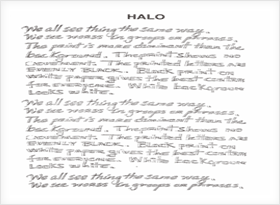 HALO
We all see thing the same way.
We see words in groups or phrases.
The print is more dominant than the
background. The print shows no
movement. The printed letters are
evenly black. Black print on
white paper gives the best contra
for everyone. White backgroun
looks white.
We all see thing the same way.
We see words in groups or phrases.
The print is more dominant than the
background. The print shows no
movement. The printed letters are
evenly black. Black print on
white paper gives the best contra
for everyone. White backgroun
looks white.
We all see thing the same way.
We see words in groups or phrases.